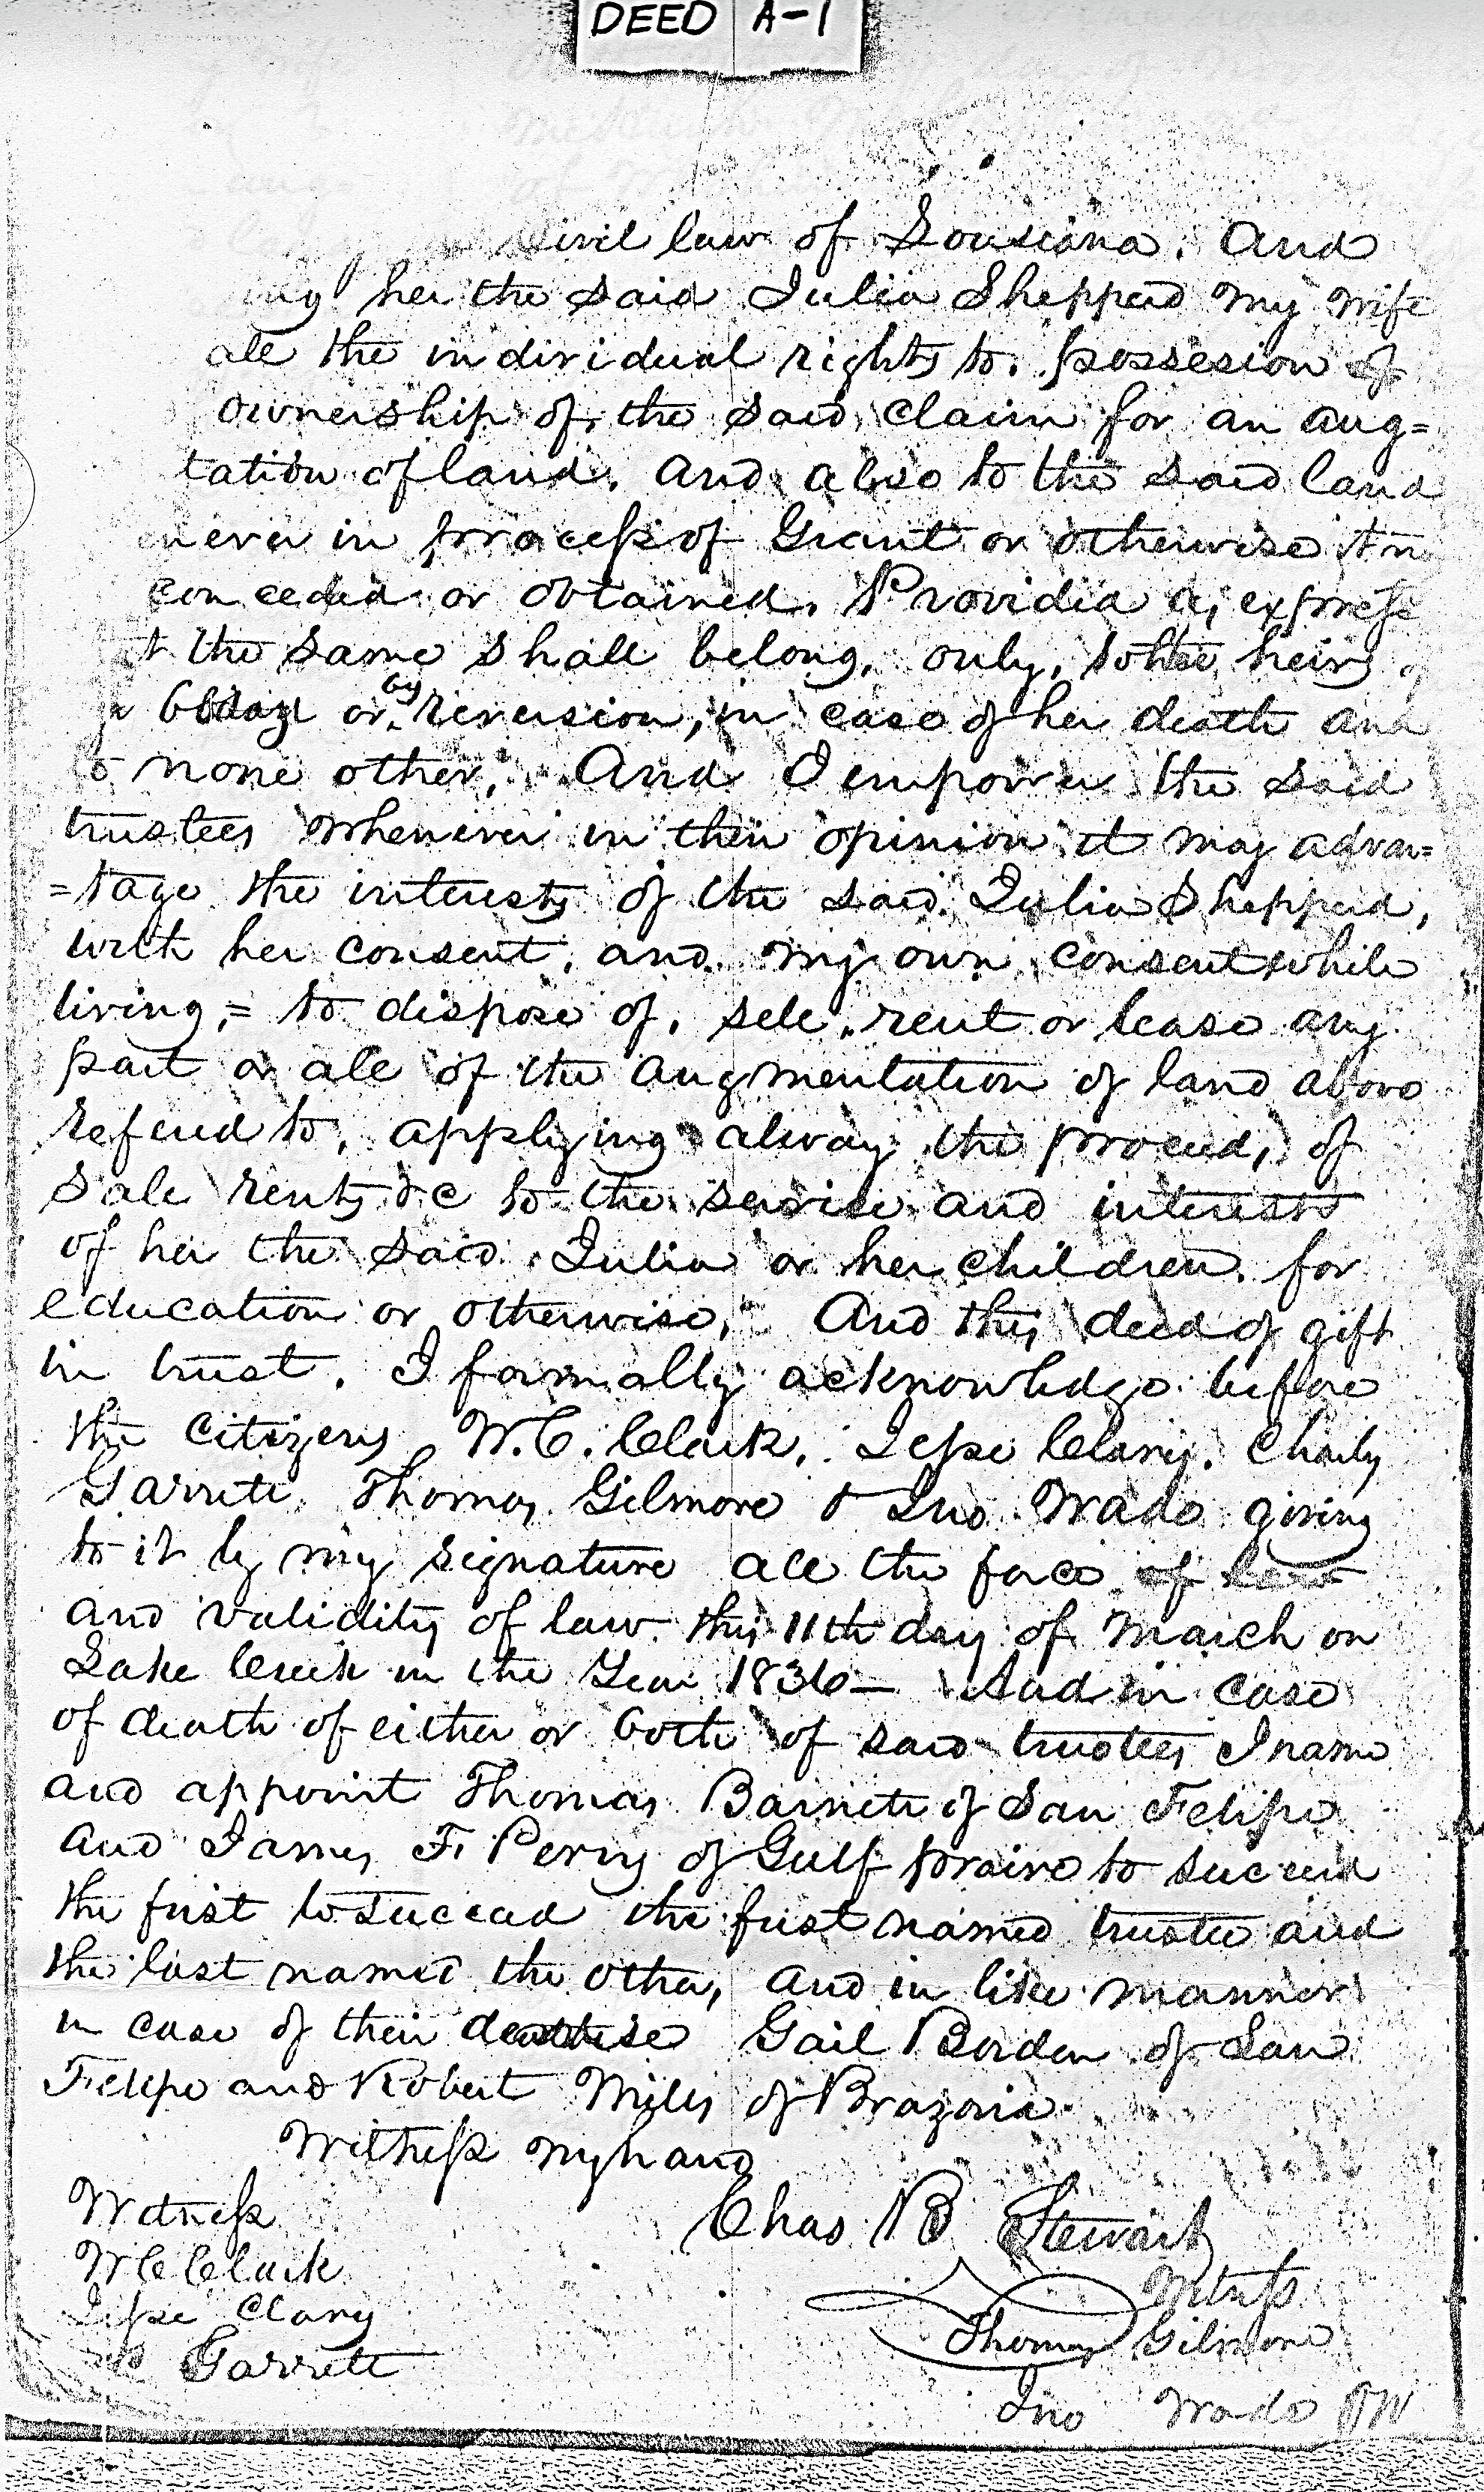 DEED A-1
Civil law of Lousiana. And
her the said Julia Shepperd my wife
all the individual rights to. possesion of
ownership of, the said claim for an aug=
tation of land. and also to the said land
in process of Grant or otherwise
conceded or obtained. Provided as express
the same shall belong. only, to her heirs
or by reversion, in case of her death and
to none other, And I empower the said
trustees whenever in their opinion it may advan=
=tage the interests of the said Julia Shepperd,
with her consent, and my own consent while
living,= to dispose of, sell, rent or lease any
part or all of the augmentation of land above
referred to, applying alway the proceeds of
Sale rents &c to the service and interests
of her the said Julia or her children for
education or otherwise, And this deed of gift
in trust. I formally acknowledge before
the citizens W.C. Clark, Jesse Clary. Charls
Garrett, Thomas Gilmore & Jno. Wade giving
to it by my signature all the force of law
and validity of law this 11th day of March on
Lake Creek in the Year 1836— And in case
of death of either or both of said trustees I name
and appoint Thomas Barnett of San Felipe
and James F. Perry of Gulf prairie to succeed
the first to succeed the first named trustee and
the last named the other, and in like manner
in case of their Gail Borden of San
Felipe and Robert Mills of Brazoria
Witness my hand
Chas B Stewart
Witness
W C Clark
Jesse Clary
C Garrett
Witness
Thomas Gilmore
Jno Wade